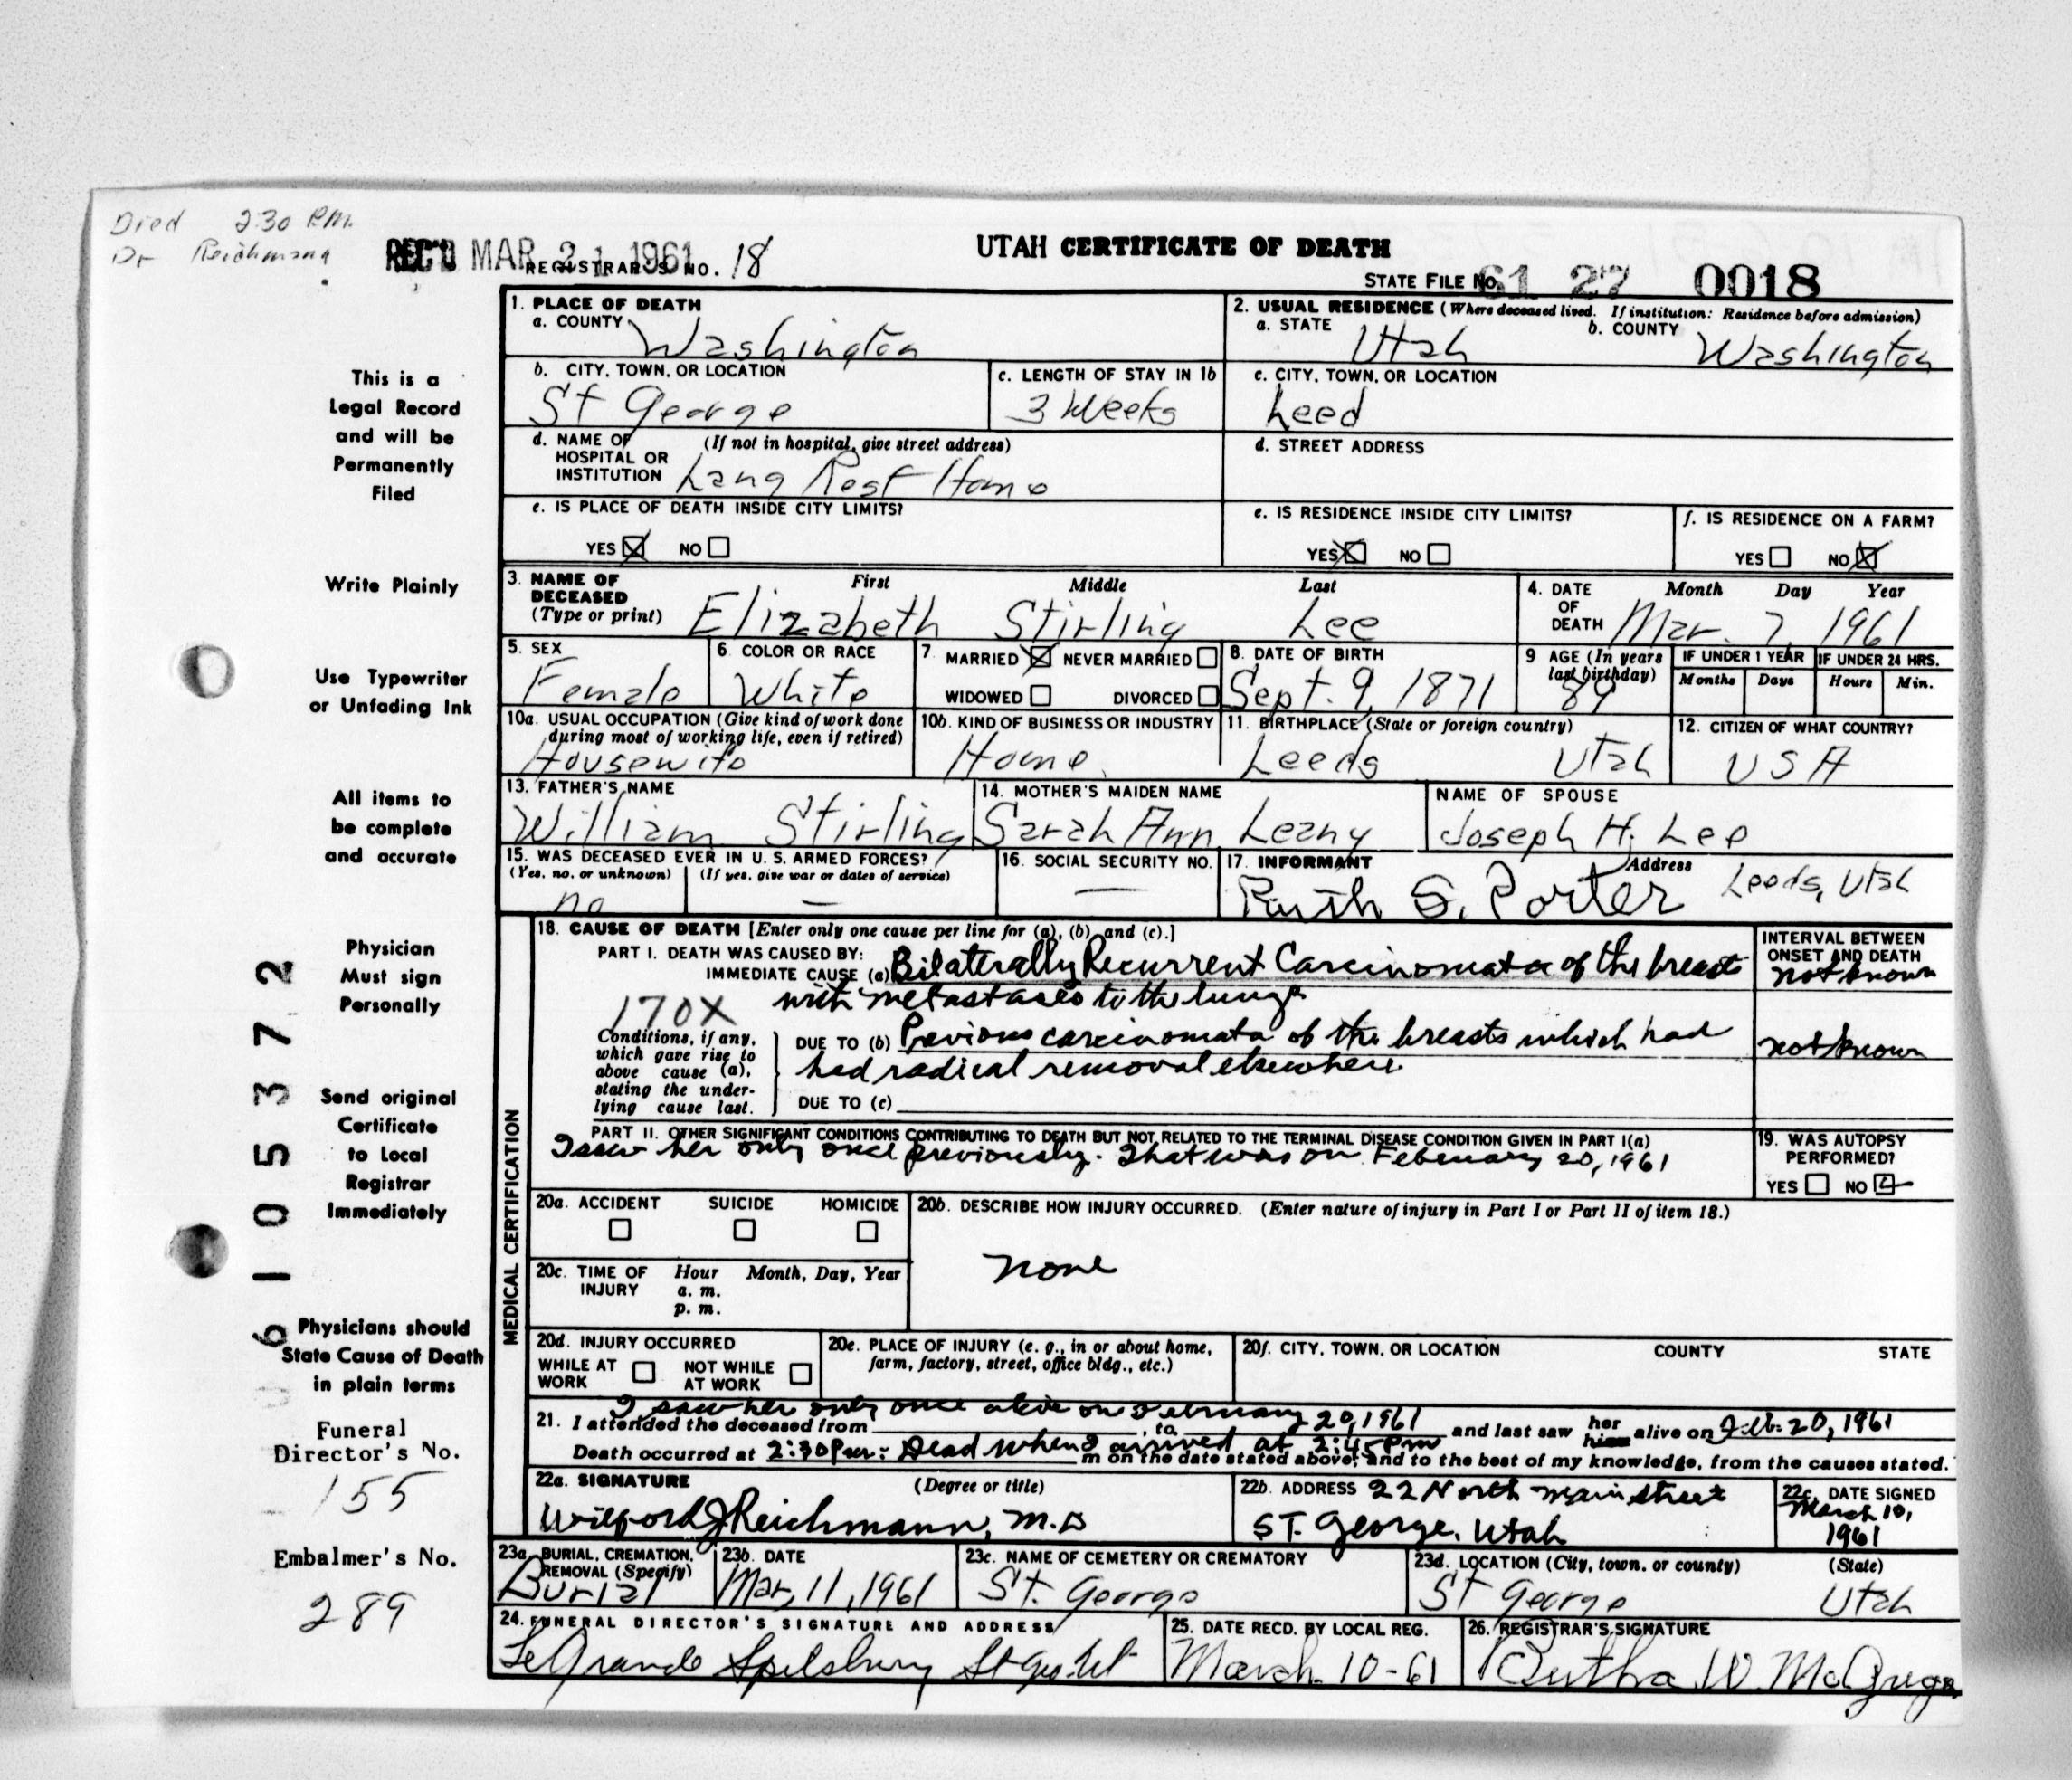 Died 2:30 P.M.
Dr Reichmann
REC'D MAR 21 1961
REGISTRAR'S NO. 18
UTAH CERTIFICATE OF DEATH
STATE FILE No. 61 27 0018
This is a
Legal Record
and will be
Permanently
Filed
Write Plainly
Use Typewriter
or Unfading Ink
All items to
be complete
and accurate
Physician
Must sign
Personally
Send original
Certificate
to Local
Registrar
Immediately
Physicians should
State Cause of Death
in plain terms
Funeral
Director's No.
155
Embalmer's No.
289
6 105372
1. PLACE OF DEATH
a. COUNTY Washington
2. USUAL RESIDENCE (Where deceased lived. If institution: Residence before admission)
a. STATE Utah b. COUNTY Washington
b. CITY, TOWN, OR LOCATION St George
c. LENGTH OF STAY IN 1b 3 Weeks
c. CITY, TOWN, OR LOCATION Leed
d. NAME OF HOSPITAL OR INSTITUTION (If not in hospital, give street address) Lang Rest Home
d. STREET ADDRESS
e. IS PLACE OF DEATH INSIDE CITY LIMITS?
YES NO
e. IS RESIDENCE INSIDE CITY LIMITS?
YES NO
f. IS RESIDENCE ON A FARM?
YES NO
3. NAME OF DECEASED (Type or print) First Middle Last
Elizabeth Stirling Lee
4. DATE OF DEATH Month Day Year
Mar. 7, 1961
5. SEX Female
6. COLOR OR RACE White
7. MARRIED NEVER MARRIED
WIDOWED DIVORCED
8. DATE OF BIRTH Sept. 9, 1871
9 AGE (In years last birthday) 89
IF UNDER 1 YEAR Months Days
IF UNDER 24 HRS. Hours Min.
10a. USUAL OCCUPATION (Give kind of work done during most of working life, even if retired) Housewife
10b. KIND OF BUSINESS OR INDUSTRY Home
11. BIRTHPLACE (State or foreign country) Leeds Utah
12. CITIZEN OF WHAT COUNTRY? USA
13. FATHER'S NAME William Stirling
14. MOTHER'S MAIDEN NAME Sarah Ann Leany
NAME OF SPOUSE Joseph H. Lee
15. WAS DECEASED EVER IN U. S. ARMED FORCES?
(Yes, no, or unknown) (If yes, give war or dates of service)
no —
16. SOCIAL SECURITY NO. —
17. INFORMANT Address
Ruth S. Porter Leeds, Utah
MEDICAL CERTIFICATION
18. CAUSE OF DEATH [Enter only one cause per line for (a), (b) and (c).]
INTERVAL BETWEEN ONSET AND DEATH
PART I. DEATH WAS CAUSED BY:
IMMEDIATE CAUSE (a) Bilaterally Recurrent Carcinomata of the breasts not known
with metastases to the lungs
170X
Conditions, if any, which gave rise to above cause (a), stating the underlying cause last.
DUE TO (b) Previous carcinomata of the breasts which had not known
had radical removal elsewhere.
DUE TO (c)
PART II. OTHER SIGNIFICANT CONDITIONS CONTRIBUTING TO DEATH BUT NOT RELATED TO THE TERMINAL DISEASE CONDITION GIVEN IN PART I(a)
I saw her only once previously. That was on February 20, 1961
19. WAS AUTOPSY PERFORMED?
YES NO
20a. ACCIDENT SUICIDE HOMICIDE
20b. DESCRIBE HOW INJURY OCCURRED. (Enter nature of injury in Part I or Part II of item 18.)
none
20c. TIME OF INJURY Hour a. m. p. m. Month, Day, Year
20d. INJURY OCCURRED
WHILE AT WORK NOT WHILE AT WORK
20e. PLACE OF INJURY (e. g., in or about home, farm, factory, street, office bldg., etc.)
20f. CITY, TOWN, OR LOCATION COUNTY STATE
I saw her only once alive on February 20, 1961
21. I attended the deceased from , to and last saw her him alive on Feb. 20, 1961
Death occurred at 2:30 Pm: Dead when I arrived at 2:45 Pm m on the date stated above; and to the best of my knowledge, from the causes stated.
22a. SIGNATURE (Degree or title)
Wilford J Reichmann, M.D
22b. ADDRESS 22 North Main Street
ST. George, Utah
22c. DATE SIGNED
March 10, 1961
23a. BURIAL, CREMATION, REMOVAL (Specify) Burial
23b. DATE Mar, 11, 1961
23c. NAME OF CEMETERY OR CREMATORY St. George
23d. LOCATION (City, town, or county) (State)
St George Utah
24. FUNERAL DIRECTOR'S SIGNATURE AND ADDRESS
LeGrande Spilsbury St Geo. Ut
25. DATE RECD. BY LOCAL REG.
March 10-61
26. REGISTRAR'S SIGNATURE
Bertha W. McGregor